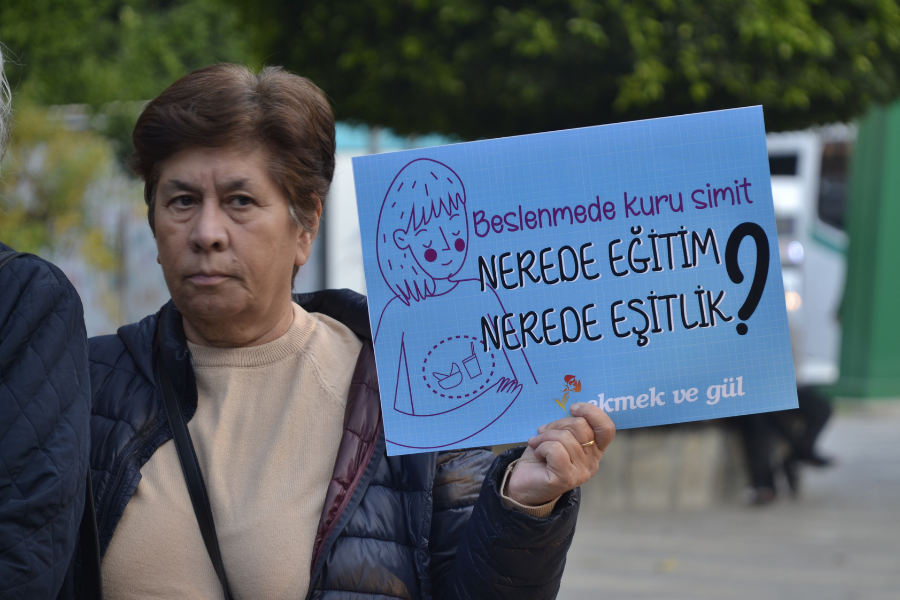 Beslenmede kuru simit
NEREDE EĞİTİM
NEREDE EŞİTLİK?
ekmek ve gül